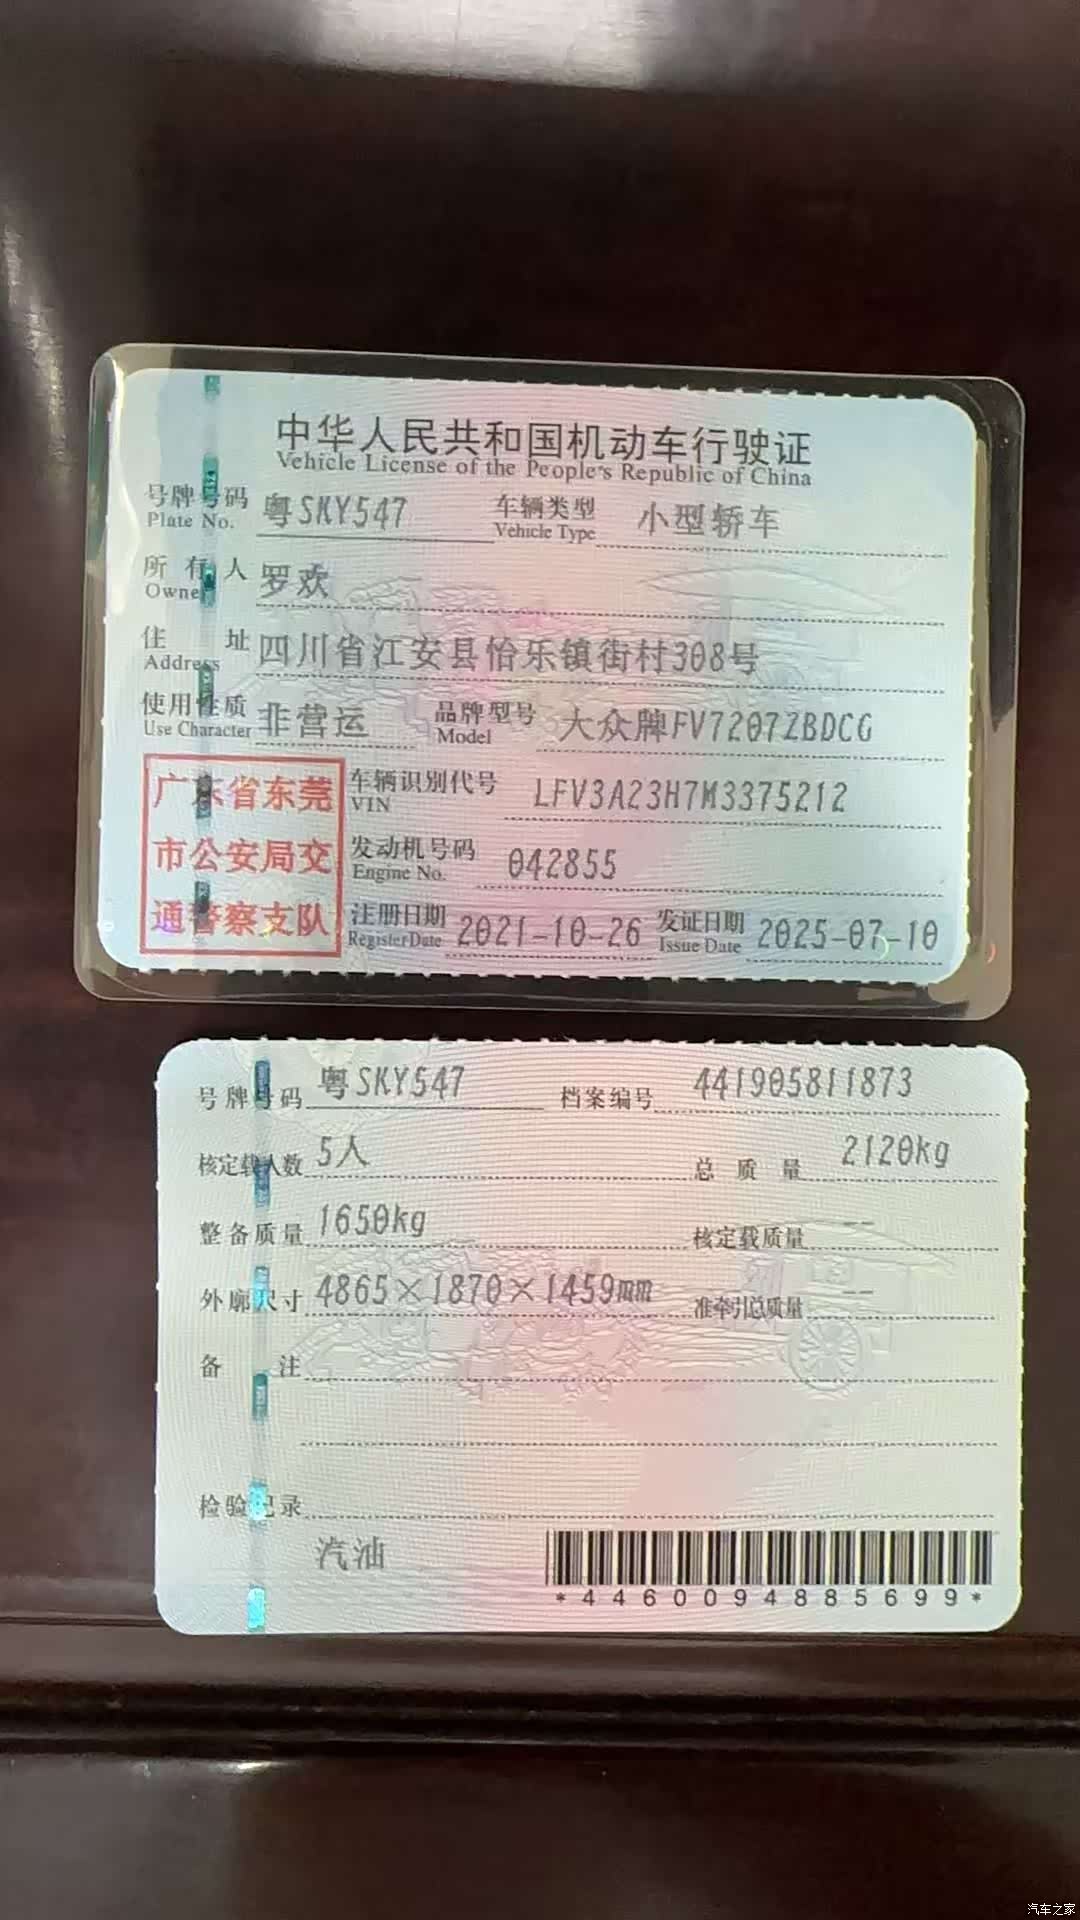 中华人民共和国机动车行驶证
Vehicle License of the People's Republic of China
号牌号码 粤SKY547 车辆类型 小型轿车
Plate No. Vehicle Type
所有人 罗欢
Owner
住址 四川省江安县怡乐镇街村308号
Address
使用性质 非营运 品牌型号 大众牌FV7207ZBDCG
Use Character Model
广东省东莞
市公安局交
通警察支队
车辆识别代号 LFV3A23H7M3375212
VIN
发动机号码 042855
Engine No.
注册日期 2021-10-26 发证日期 2025-07-10
Register Date Issue Date
号牌号码 粤SKY547 档案编号 441905811873
核定载人数 5人 总质量 2120kg
整备质量 1650kg 核定载质量 --
外廓尺寸 4865×1870×1459mm 准牵引总质量 --
备注
检验记录
汽油
*4460094885699*
汽车之家